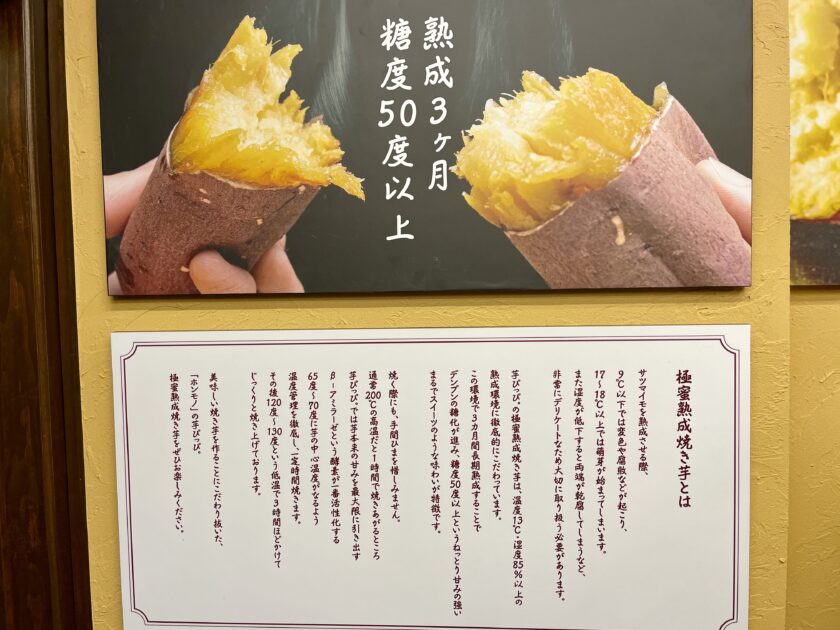 熟成3ヶ月
糖度50度以上
極蜜熟成焼き芋とは
サツマイモを熟成させる際、
9℃以下では変色や腐敗などが起こり、
17〜18℃以上では萌芽が始まってしまいます。
また湿度が低下すると両端が乾腐してしまうなど、
非常にデリケートなため大切に取り扱う必要があります。
芋ぴっぴ。の極蜜熟成焼き芋は、温度13℃・湿度85%以上の
熟成環境に徹底的にこだわっています。
この環境で3カ月間長期熟成することで
デンプンの糖化が進み、糖度50度以上というねっとり甘みの強い
まるでスイーツのような味わいが特徴です。
焼く際にも、手間ひまを惜しみません。
通常200℃の高温だと1時間で焼きあがるところ
芋ぴっぴ。では芋本来の甘みを最大限に引き出す
β-アミラーゼという酵素が一番活性化する
65度〜70度に芋の中心温度がなるよう
温度管理を徹底し、一定時間焼きます。
その後120度〜130度という低温で3時間ほどかけて
じっくりと焼き上げております。
美味しい焼き芋を作ることにこだわり抜いた、
「ホンモノ」の芋ぴっぴ。
極蜜熟成焼き芋をぜひお楽しみください。